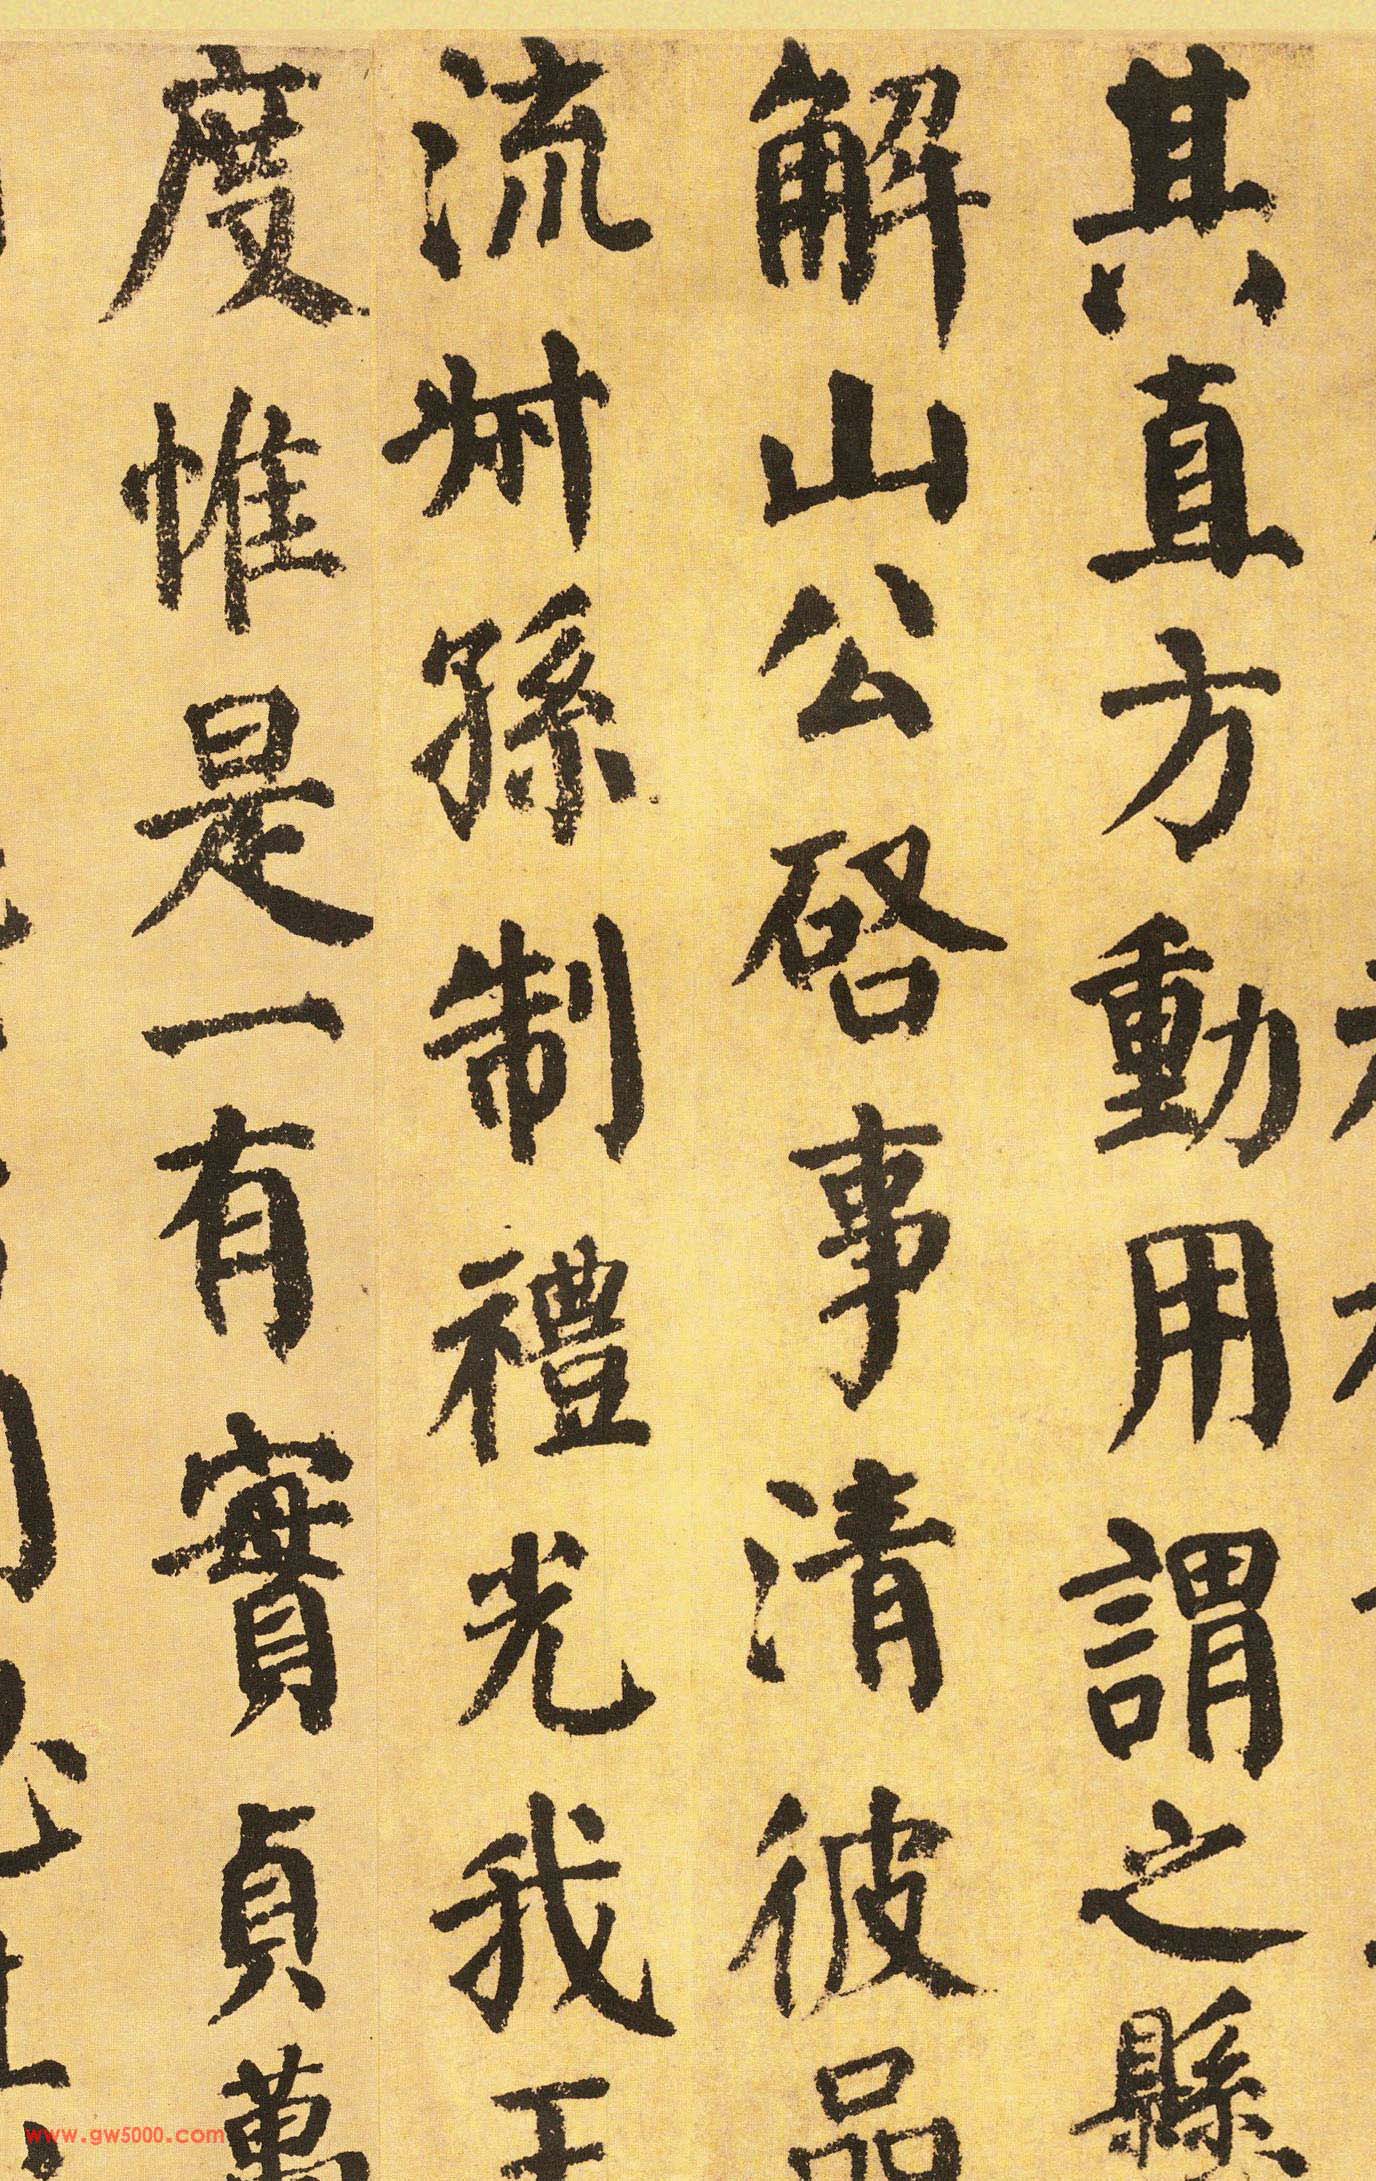 其直方動用謂之縣
解山公啓事清彼品
流叔孫制禮光我王
度惟是一有實貞萬
www.gw5000.com